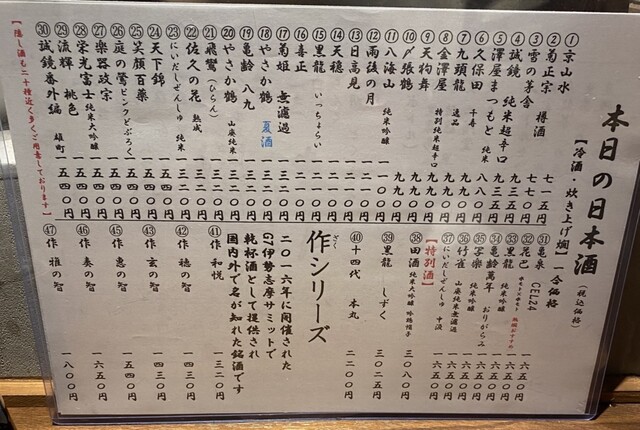 本日の日本酒
【冷酒・炊き上げ燗】一合価格（税込価格）
①京山水 七一五円
②菊正宗 樽酒 七七〇円
③雪の茅舎 七七〇円
④誠鏡 純米超辛口 九三五円
⑤澤屋まつもと 純米 九三五円
⑥久保田 千寿 八八〇円
⑦九頭龍 逸品 九九〇円
⑧金澤屋 特別純米超辛口 九九〇円
⑨天狗舞 九九〇円
⑩〆張鶴 九九〇円
⑪八海山 純米吟醸 一一〇〇円
⑫雨後の月 一二一〇円
⑬日高見 一二一〇円
⑭天穏 一二一〇円
⑮黒龍 いっちょらい 一二一〇円
⑯喜正 一二一〇円
⑰菊姫 無濾過 一三二〇円
⑱やさか鶴 夏酒 一三二〇円
⑲亀齢 八九 一三二〇円
⑳やさか鶴 山廃純米 一三二〇円
㉑飛鸞（ひらん） 一三二〇円
㉒佐久の花 熟成 一三二〇円
㉓にいだしぜんしゅ 純米 一三二〇円
㉔天下錦 一五四〇円
㉕笑顔百薬 一五四〇円
㉖庭の鶯 ピンクどぶろく 一五四〇円
㉗楽器政宗 一五四〇円
㉘栄光冨士 純米大吟醸 一五四〇円
㉙流輝 桃色 一五四〇円
㉚誠鏡番外編 雄町 一五四〇円
【隠し酒も二十種近く多くご用意しております】
㉛亀泉 CEL24 一六五〇円
㉜花巴 一六五〇円
㉝黒龍 純米吟醸 一六五〇円
㉞亀齢萬年 おりがらみ 一六五〇円
㉟写楽 純米吟醸 一六五〇円
㊱竹雀 山廃純米無濾過 一六五〇円
㊲にいだしぜんしゅ 中汲 一六五〇円
【特別酒】
㊳田酒 純米大吟醸 吟烏帽子 三〇八〇円
㊴黒龍 しずく 三〇二五円
㊵十四代 本丸 二二〇〇円
作シリーズ
ざく
二〇一六年に開催された
G7伊勢志摩サミットで
乾杯酒として提供され
国内外で名が知れた銘酒です
㊶作 和悦 一三二〇円
㊷作 穂の智 一四三〇円
㊸作 玄の智 一四三〇円
㊺作 恵の智 一五四〇円
㊻作 奏の智 一六五〇円
㊼作 雅の智 一八〇〇円